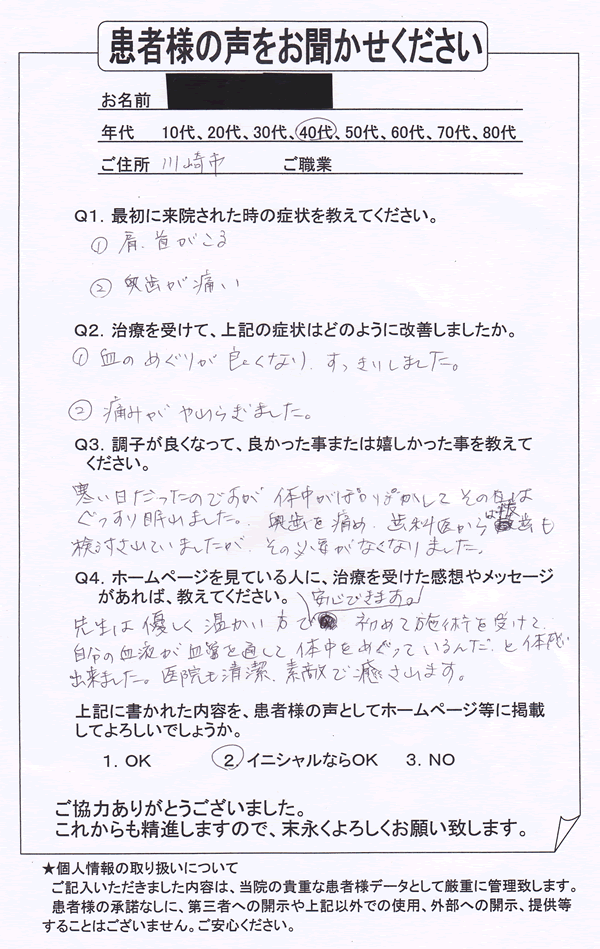 患者様の声をお聞かせください
お名前
年代 10代、20代、30代、40代、50代、60代、70代、80代
ご住所 川崎市 ご職業
Q1. 最初に来院された時の症状を教えてください。
① 肩、首がこる
② 奥歯が痛い
Q2. 治療を受けて、上記の症状はどのように改善しましたか。
① 血のめぐりが良くなり、すっきりしました。
② 痛みがやわらぎました。
Q3. 調子が良くなって、良かった事または嬉しかった事を教えて
ください。
寒い日だったのですが 体中がぽかぽかして その日は
ぐっすり眠れました。 奥歯を痛め、歯科医から抜歯も
検討されていましたが、その必要がなくなりました。
Q4. ホームページを見ている人に、治療を受けた感想やメッセージ
があれば、教えてください。
安心できます。
先生は優しく温かい方で 初めて施術を受けて、
自分の血液が血管を通して体中をめぐっているんだ、と体感
出来ました。医院も清潔、素敵で癒されます。
上記に書かれた内容を、患者様の声としてホームページ等に掲載
してよろしいでしょうか。
1. OK 2. イニシャルならOK 3. NO
ご協力ありがとうございました。
これからも精進しますので、末永くよろしくお願い致します。
★個人情報の取り扱いについて
ご記入いただきました内容は、当院の貴重な患者様データとして厳重に管理致します。
患者様の承諾なしに、第三者への開示や上記以外での使用、外部への開示、提供等
することはございません。ご安心ください。